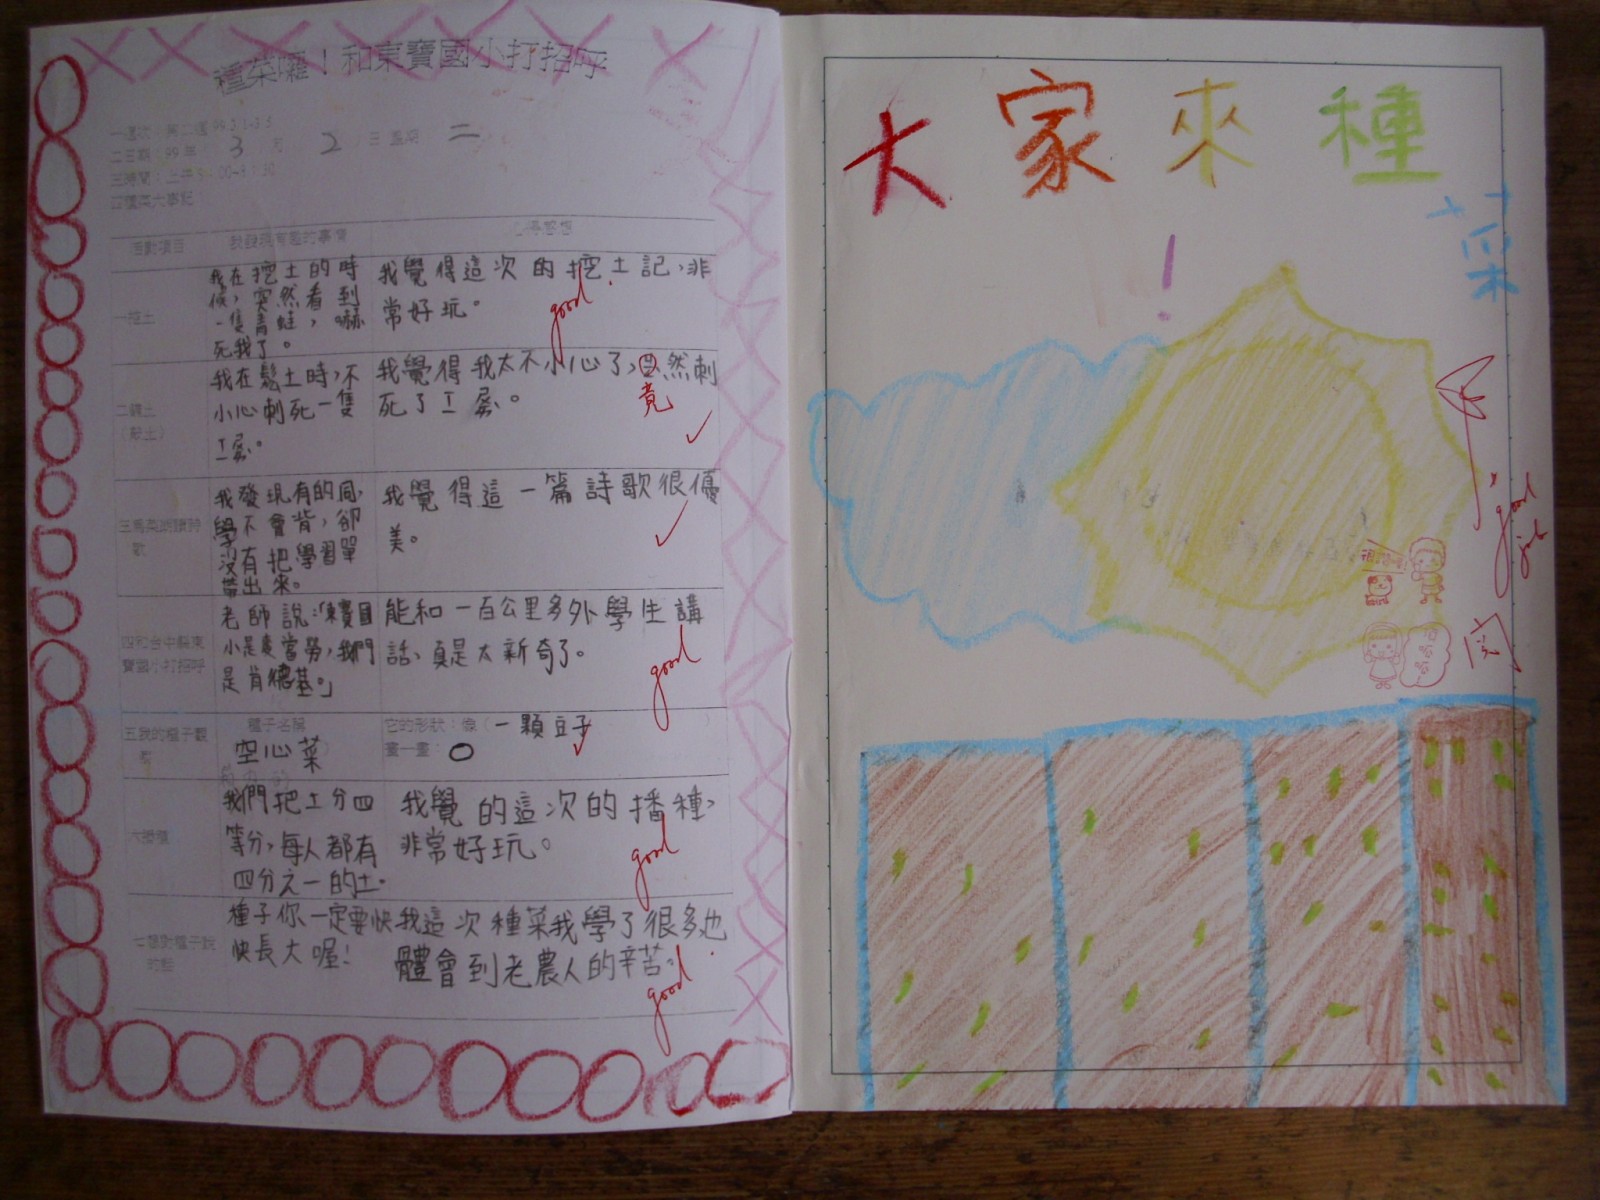 種菜囉!和東寶國小打招呼
一週次:第二週99.3.1-3.5
二日期:99年 3 月 2 日 星期 二
三時間:上午
四種菜大事記
活動項目 我發現有趣的事情 心得感想
一挖土
我在挖土的時
候,突然看到
一隻青蛙,嚇
死我了。
我覺得這次的挖土記,非
常好玩。
good.
二鬆土
(敲土)
我在鬆土時,不
小心刺死一隻
我覺得我太不小心了,然刺
竟
死了
我發現有的同
學不會背,卻
沒有把學習單
帶出來。
我覺得這一篇詩歌很優
美。
四和台中縣東
寶國小打招呼
老師說:「東寶國
小是麥當勞,我們
是肯德基。」
能和一百公里多外學生講
話,真是太新奇了。
good
五我的種子觀
察
種子名稱
空心菜
它的形狀:像(一顆豆子)
畫一畫:
六播種
我們把土分四
等分,每人都有
四分之一的土。
我覺的這次的播種,
非常好玩。
good
七想對種子說
的話
種子你一定要快
快長大喔!
我這次種菜我學了很多也
體會到老農人的辛苦。
good.
大家來種
菜
!
good
閱